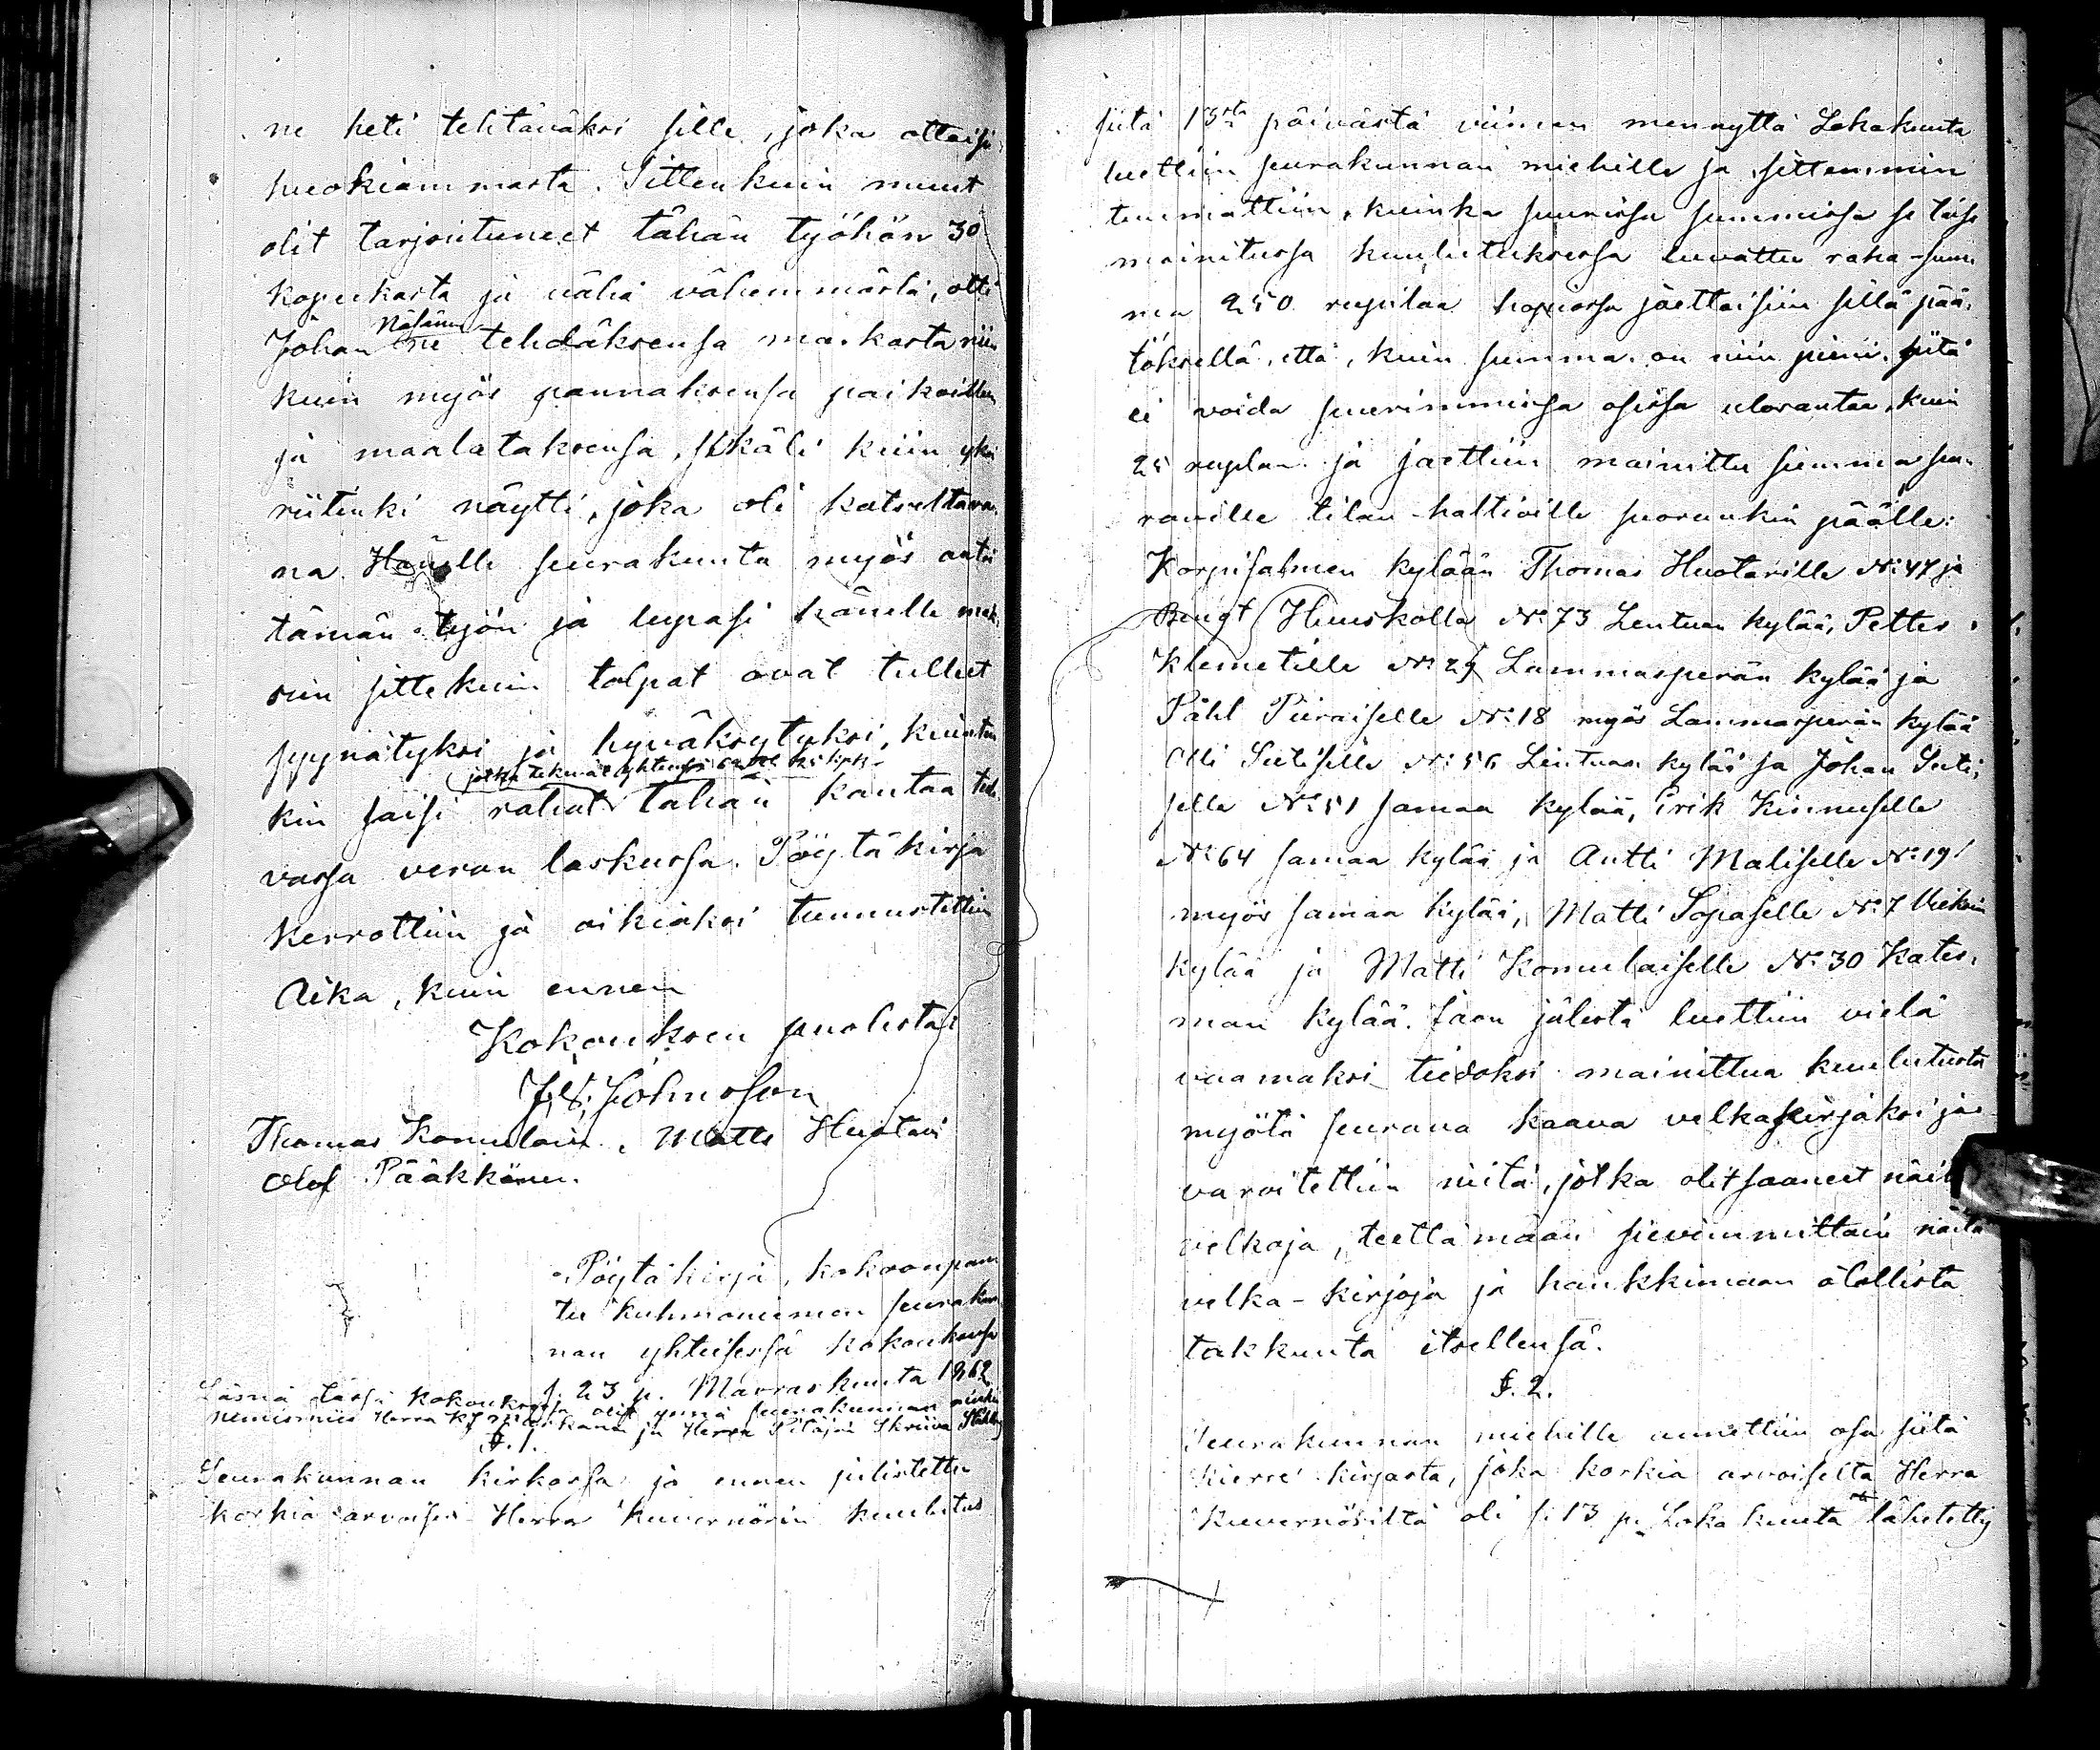 ne heti tehtäväksi sille, joka ottaisi
huokiammasta. Sitten kuin muut
olit tarjoutuneet tähän työhön 30
kopeekasta ja vähä vähemmästä, otti
Johan Näsänen ne tehdäksensä markasta niin
kuin myös pannaksensa paikoillen
ja maalataksensa, sikäli kuin yksi
riitinki näytti, joka oli katseltava-
na. Hänelle seurakunta myös antoi
tämän työn ja lupasi hänelle mak-
sun sitte kuin tolpat ovat tulleet
syynätyksi ja hyväksytyksi, kuinten
jotka tekevät yhteensä kpk.
kin saisi rahat tähän kantaa tule-
vassa veron laskussa. Pöytäkirja
kerrottiin ja oikiaksi tunnustettiin
Aika, kuin ennen
Kokouksen puolesta
J. Johnsson
Thomas Komulain. Matts Huotari
Olof Pääkkönen.
Pöytäkirja, kokoonpan
tu Kuhmoniemen seurakun
nan yhteisessä kokouksessa
s. 23 p. Marraskuuta 1862
Läsnä tässä kokouksessa olit ynnä seurakunnan miehiä
nimismies Herra ja Herra Pitäjän Skriivari Ståhlberg
§. 1.
Seurakunnan kirkossa jo ennen julistettu
korkia arvoisen Herra Kuvernörin kuulutus
siitä 13sta päivästä viimen mennyttä Lokakuuta
luettiin seurakunnan miehille ja sittemmin
tuumattiin, kuinka suurissa summissa se tässä
mainitussa kuulutuksessa luvattu raha-sum
ma 250 ruplaa hopiassa jaettaisiin sillä pää-
töksellä, että, kuin summa on niin pieni, siitä
ei voida suurimmissa osissa ulosantaa, kuin
25 ruplan ja jaettiin mainittu summa seu-
raville tilan haltioille suorunkin päälle:
Korpisalmen kylään Thomas Huotarille No 47 ja
Bengt Huuskolle No 73 Lentuan kylää, Petter
Klemetille No 29 Lammasperän kylää ja
Påhl Piiraiselle No 18 myös Lammasperän kylää
Olli Sutiselle No 56 Lentuan kylää ja Johan Suti-
selle No 51 samaa kylää, Erik Kinnuselle
No 64 samaa kylää ja Antti Maliselle No 19
myös samaa kylää, Matti Sopaselle No 7 Vieksin
kylää ja Matti Komulaiselle No 30 Kates-
man kylää. Jaon jälestä luettiin vielä
vaamaksi tiedoksi mainittua kuulutusta
myötä seurava kaava velkakirjaksi ja
varoitettiin niitä, jotka olit saaneet näitä
velkoja, teettämään sievimmittäin näitä
velka-kirjoja ja hankkimaan älöllistä
takkuuta itsellensä.
§. 2.
Seurakunnan miehille annettiin osa siitä
Kierre' kirjasta, joka korkia arvoiselta Herra
Kuvernöriltä oli s. 13 p. Loka kuuta lähetetty